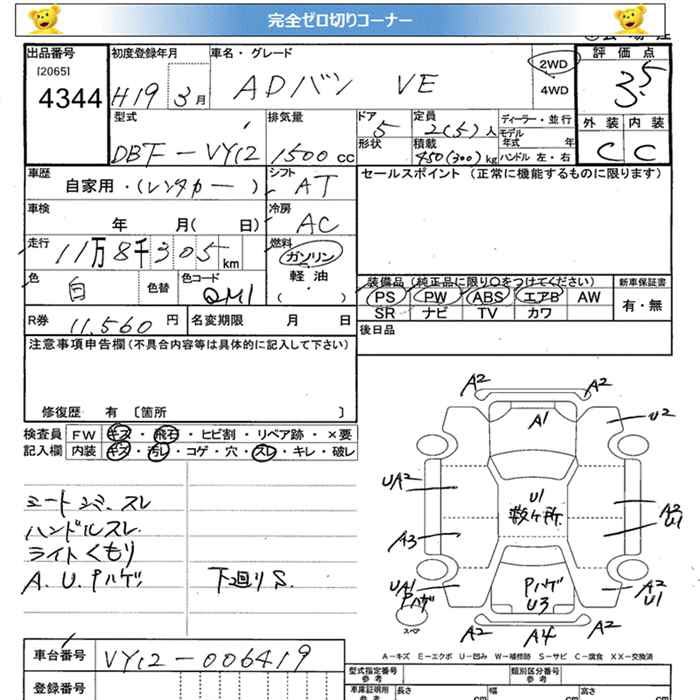 完全ゼロ切りコーナー
出品番号
[2065]
4344
初度登録年月
H19 3月
車名・グレード
ADバン VE
2WD
4WD
評価点
3.5
型式
DBF-VY12
排気量
1500 cc
ドア
5
形状
定員
2(5)人
積載
450(300)kg
ディーラー・並行
モデル
年式 年
ハンドル 左・右
外装 内装
C C
車歴
自家用・(レンタカー)
シフト
AT
セールスポイント(正常に機能するものに限ります)
車検
年 月(日)
冷房
AC
走行
11万8千305km
燃料
ガソリン
軽油
(・)
色
白
色替
色コード
QM1
装備品(純正品に限り○をつけてください)
PS PW ABS エアB AW
SR ナビ TV カワ
新車保証書
有・無
R券 11,560円
名変期限 月 日
後日品
注意事項申告欄(不具合内容等は具体的に記入して下さい)
修復歴 有 〔箇所 〕
検査員
記入欄
FW キズ・飛石・ヒビ割・リペア跡・×要
内装 キズ・汚レ・コゲ・穴・スレ・キレ・破レ
シートシミ、スレ
ハンドルスレ
ライトくもり
A.U.Pハゲ
下廻りS.
A2 A2
A1
U2
UA2
U1
数ヶ所
A2
U1
A3
UA1
Pハゲ
Pハゲ
U3
A2
U1
スペア
A2 A4 A2
A-キズ E-エクボ U-凹み W-補修跡 S-サビ C-腐食 XX-交換済
車台番号
VY12-006419
登録番号
型式指定番号
参考
類別区分番号
参考
車庫証明用
参考
長さ cm
幅 cm
高さ cm